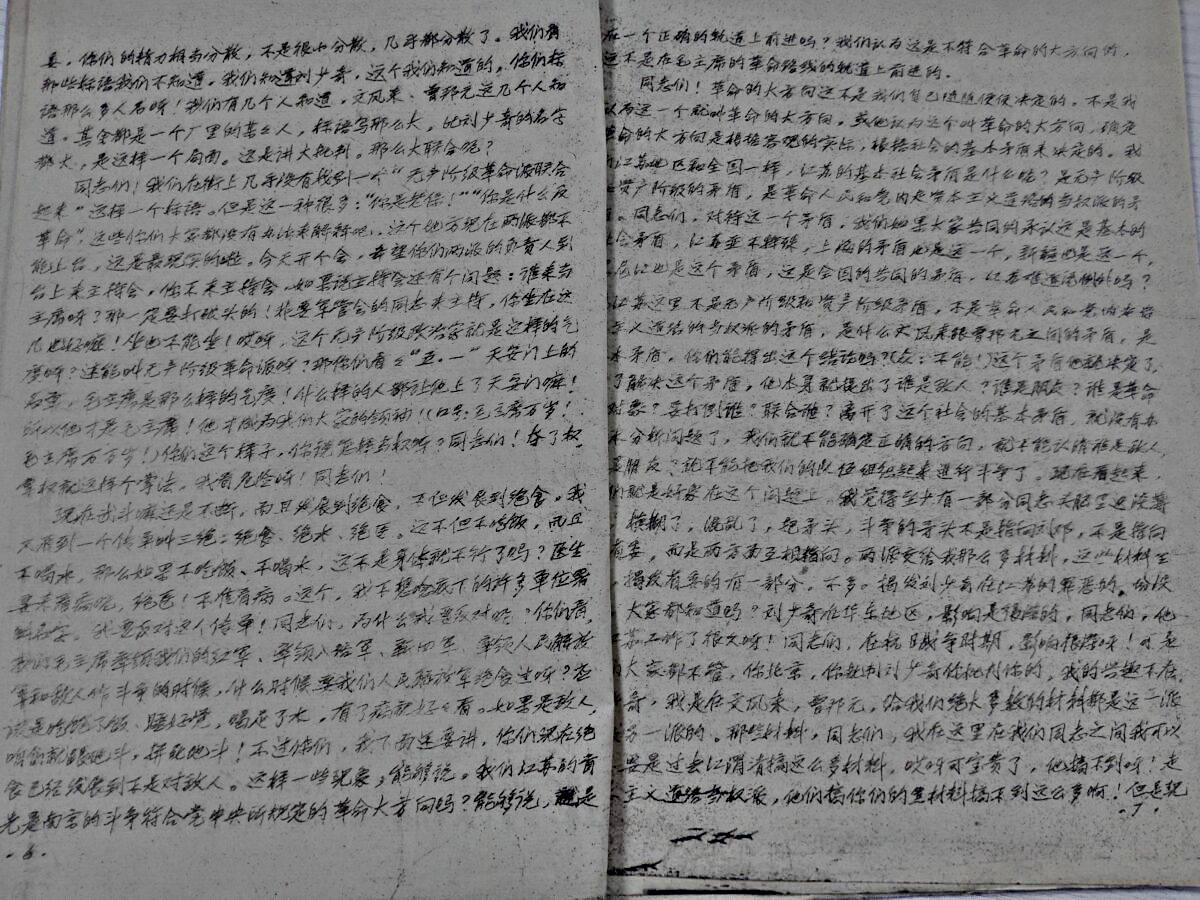 县，你们的精力相当分散，不是很小分散，几乎都分散了。我们看
那些标语我们不知道。我们知道刘少奇，这个我们知道的。你们标
语那么多人名呀！我们有几个人知道。文凤来、曾邦元这几个人知
道。其余都是一个厂里的某某人，标语写那么大，比刘少奇的名字
都大，是这样一个局面。这是讲大批判。那么大联合呢？
同志们！我们在街上几乎没有找到一个“无产阶级革命派联合
起来”这样一个标语。但是这一种很多：“你是老保！”“你是什么反
革命”，这些你们大家都没有办法来解释吧、这个地方现在两派都不
能上台，这是最现实的啦。今天开个会，希望你们两派的负责人到
台上来主持会，你不来主持会。如果说主持会还有个问题：谁来当
主席呀？那一定要打破头的！非要军管会的同志来主持，你坐在这
儿也好嘛！坐也不能坐！哎呀，这个无产阶级政治家就是这样的气
度呀？还能叫无产阶级革命派呀？那你们看看“五·一”天安门上的
名单，毛主席是那么样的气度！什么样的人都让他上了天安门嘛！
所以他才是毛主席！他才成为我们大家的领袖！（口号：毛主席万岁！
毛主席万万岁！）你们这个样子，你说怎能当权呀？同志们！夺了权，
掌权就这样个掌法，我看危险呀！同志们！
现在武斗嘛还是不断，而且发展到绝食，不但发展到绝食。我
又看到一个传单叫三绝：绝食、绝水、绝医。这不但不吃饭，而且
不喝水，那么如果不吃饭、不喝水，这不是身体就不行了吗？医生
要来看病呢，绝医！不准看病。这个，我不想念底下的许多单位署
的名字。我要反对这个传单！同志们，为什么我要反对呢？你们看，
我们毛主席率领我们的红军、率领八路军、新四军、率领人民解放
军和敌人作斗争的时候，什么时候要我们人民解放军绝食过呀？应
该是吃饱了饭、睡好觉，喝足了水，有了病就好好看。如果是敌人，
咱们就跟他斗，拼死他斗！不过他们，我下面还要讲，你们现在绝
食已经发展到不是对敌人。这样一些现象，能够说。我们江苏的首
先是南京的斗争符合党中央所规定的革命大方向吗？能够说，就是
·6·
在一个正确的轨道上前进吗？我们认为这是不符合革命的大方向的，
这不是在毛主席的革命路线的轨道上前进的。
同志们！革命的大方向这不是我们自己随随便便决定的。不是我
认为这一个就叫革命的大方向。或他认为这个叫革命的大方向，确定
革命的大方向是根据客观的实际，根据社会的基本矛盾来决定的。我
们江苏地区和全国一样，江苏的基本社会矛盾是什么呢？是无产阶级
资产阶级的矛盾，是革命人民和党内走资本主义道路的当权派的矛
。同志们，对待这一个矛盾，我们如果大家共同的承认这是基本的
会矛盾，江苏并不特殊，上海的矛盾也是这一个，新疆也是这一个，
江也是这个矛盾，这是全国的共同的矛盾，江苏难道活例外吗？
江苏这里不是无产阶级和资产阶级矛盾，不是革命人民和党内走资
主义道路的当权派的矛盾，是什么文凤来跟曾邦元之间的矛盾，是
本矛盾。你们能得出这个结论吗？（众：不能！）这个矛盾他就决定了，
了解决这个矛盾，他本身就提出了谁是敌人？谁是朋友？谁是革命
对象？要打倒谁？联合谁？离开了这个社会的基本矛盾，就没有办
来分析问题了，我们就不能确定正确的方向，就不能认清谁是敌人，
是朋友？就不能把我们的队伍组织起来进行斗争了。现在看起来，
们就是好象在这个问题上。我觉得至少有一部分同志头脑里边没有
模糊了，混乱了，把矛头，斗争的矛头不是指向刘邓，不是指向
省委，而是两方面互相指向。两派交给我那么多材料，这些材料里
揭发省委的有一部分。不多。揭发刘少奇在江苏的罪恶的，
大家都知道吗？刘少奇在华东地区，影响是很深的，同志们，他
苏工作了很久呀！同志们，在抗日战争时期，影响很深呀！可是
大家都不管，你北京，你批判刘少奇你批判你的，我的兴趣不在
奇，我是在文凤来，曾邦元，给我们绝大多数的材料都是这一派
另一派的。那些材料，同志们，我在这里在我们同志之间我可以
要是过去江渭清搞这么多材料，哎呀可宝贵了，他搞不到呀！走
主义道路当权派，他们搞你们的黑材料搞不到这么多啊！但是现
·7·